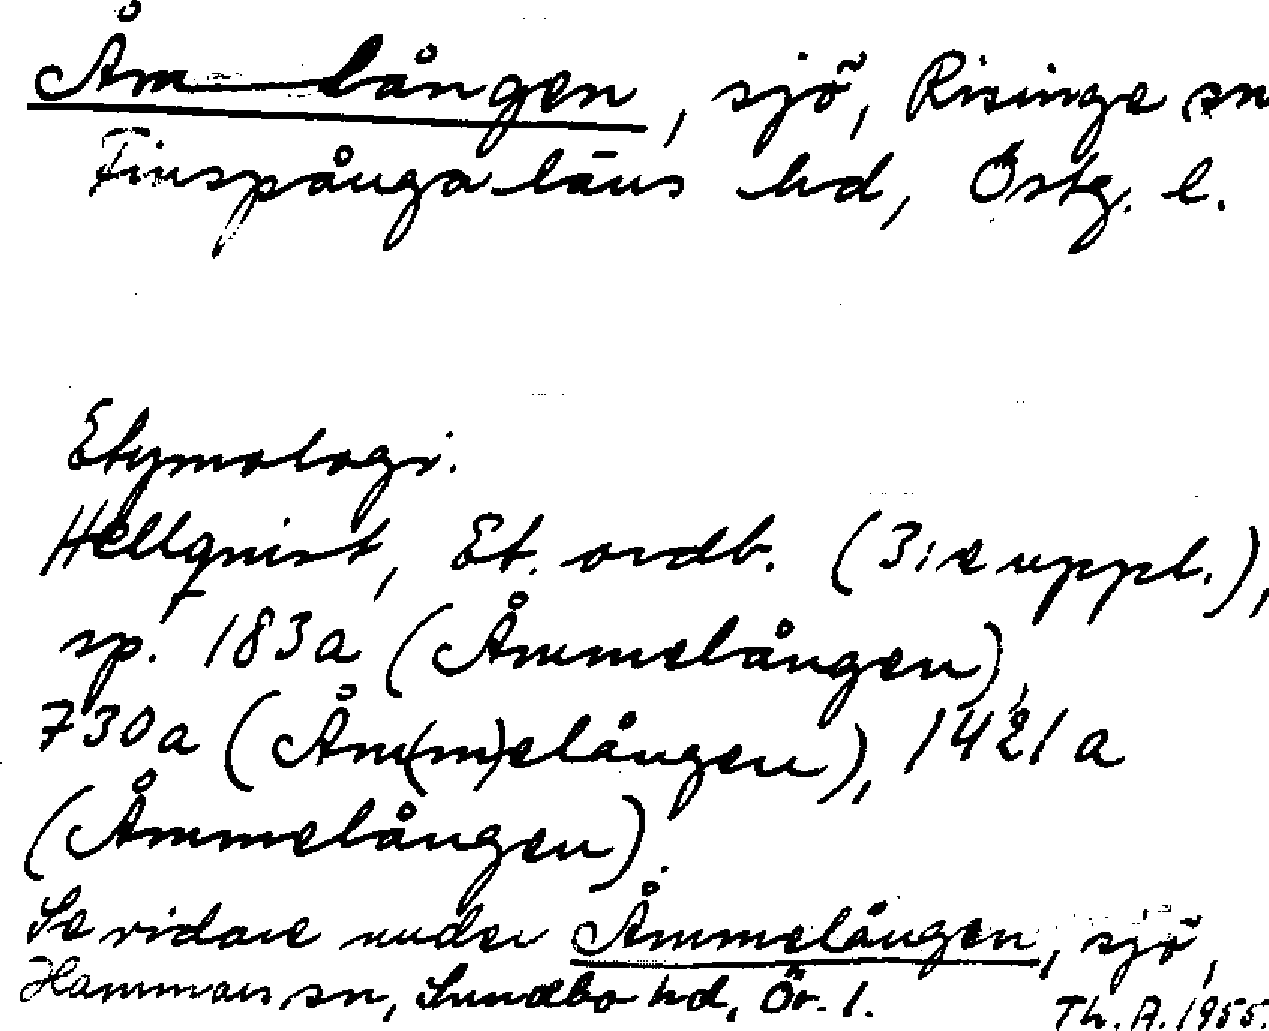 Åm-lången, sjö, Risinge sn
Finspånga läns hd, Östg. l.
Etymologi.
Hellquist, Et. ordb. (3:e uppl.),
sp. 183a (Åmmelången),
730a (Åm(m)elången), 1421a
(Åmmelången).
Se vidare under Åmmelången, sjö,
Hammars sn, Sundbo hd, Ör. l.
Th. A. 1955.